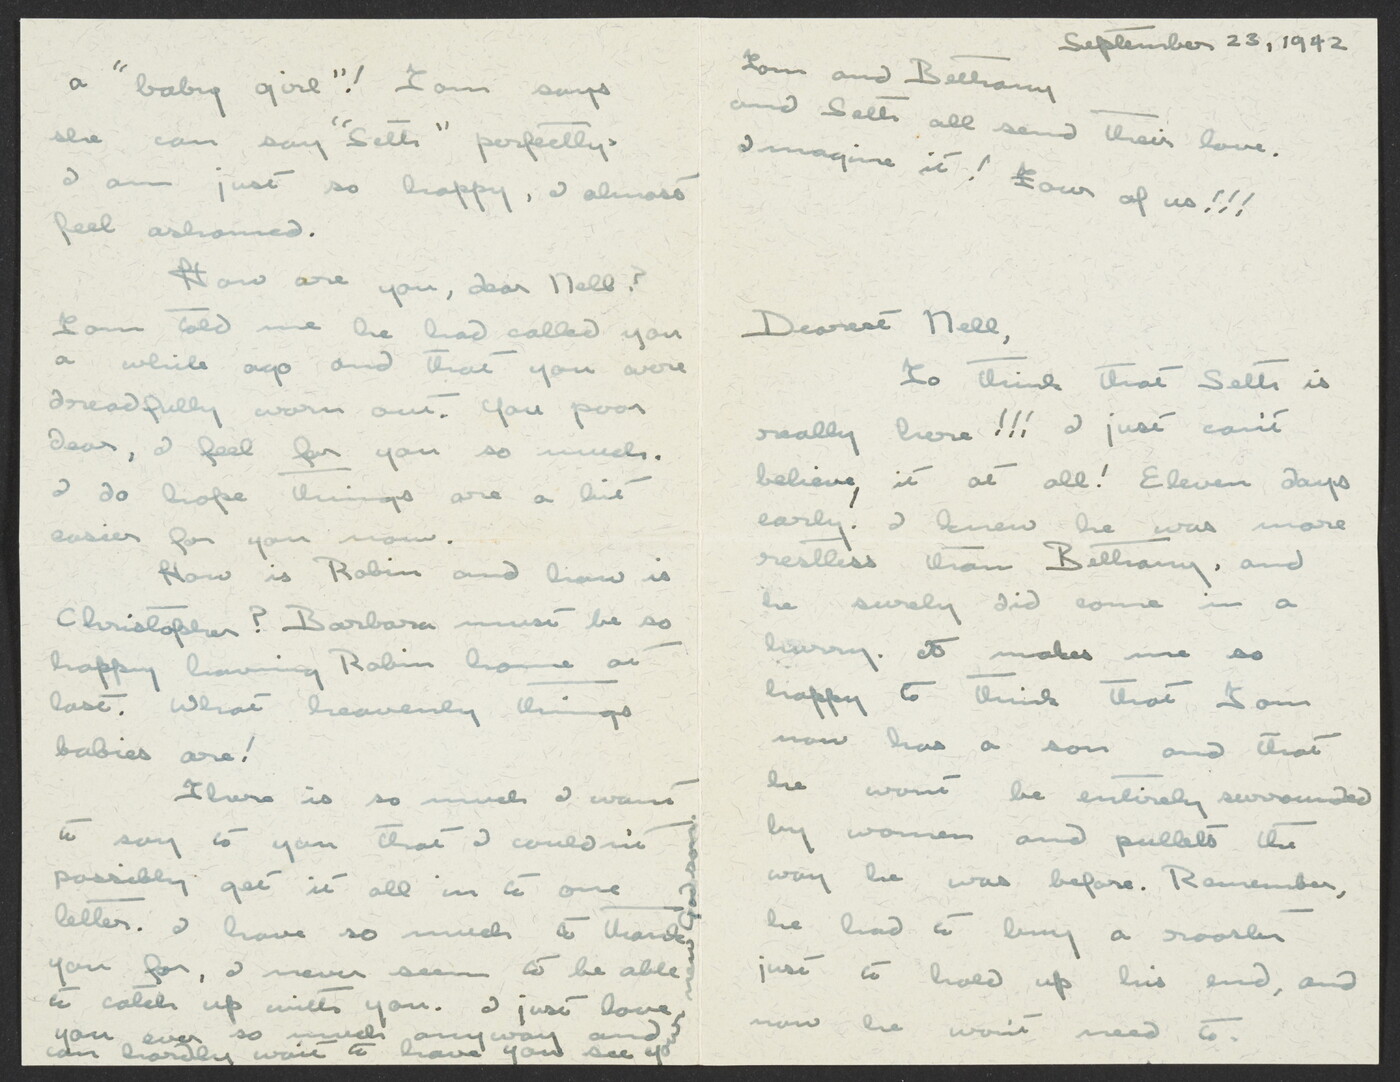 September 23, 1942
Tom and Bethany
and Seth all send their love.
Imagine it! Four of us!!!
Dearest Nell,
To think that Seth is
really here!!! I just can't
believe, it at all! Eleven days
early! I knew he was more
restless than Bethany, and
he surely did come in a
hurry. It makes me so
happy to think that Tom
now has a son and that
he wont be entirely surrounded
by women and pullets the
way he was before. Remember,
he had to buy a rooster
just to hold up his end, and
now he won't need to.
a "baby girl"! Tom says
she can say "Seth" perfectly.
I am just so happy, I almost
feel ashamed.
How are you, dear Nell?
Tom told me he had called you
a while ago and that you were
dreadfully worn out. You poor
dear, I feel for you so much.
I do hope things are a bit
easier for you now.
How is Robin and how is
Christopher? Barbara must be so
happy having Robin home at
last. What heavenly things
babies are!
There is so much I want
to say to you that I couldn't
possibly get it all in to one
letter. I have so much to thank
you for, I never seem to be able
to catch up with you. I just love
you ever so much anyway and
can hardly wait to have you see your
new Godson.